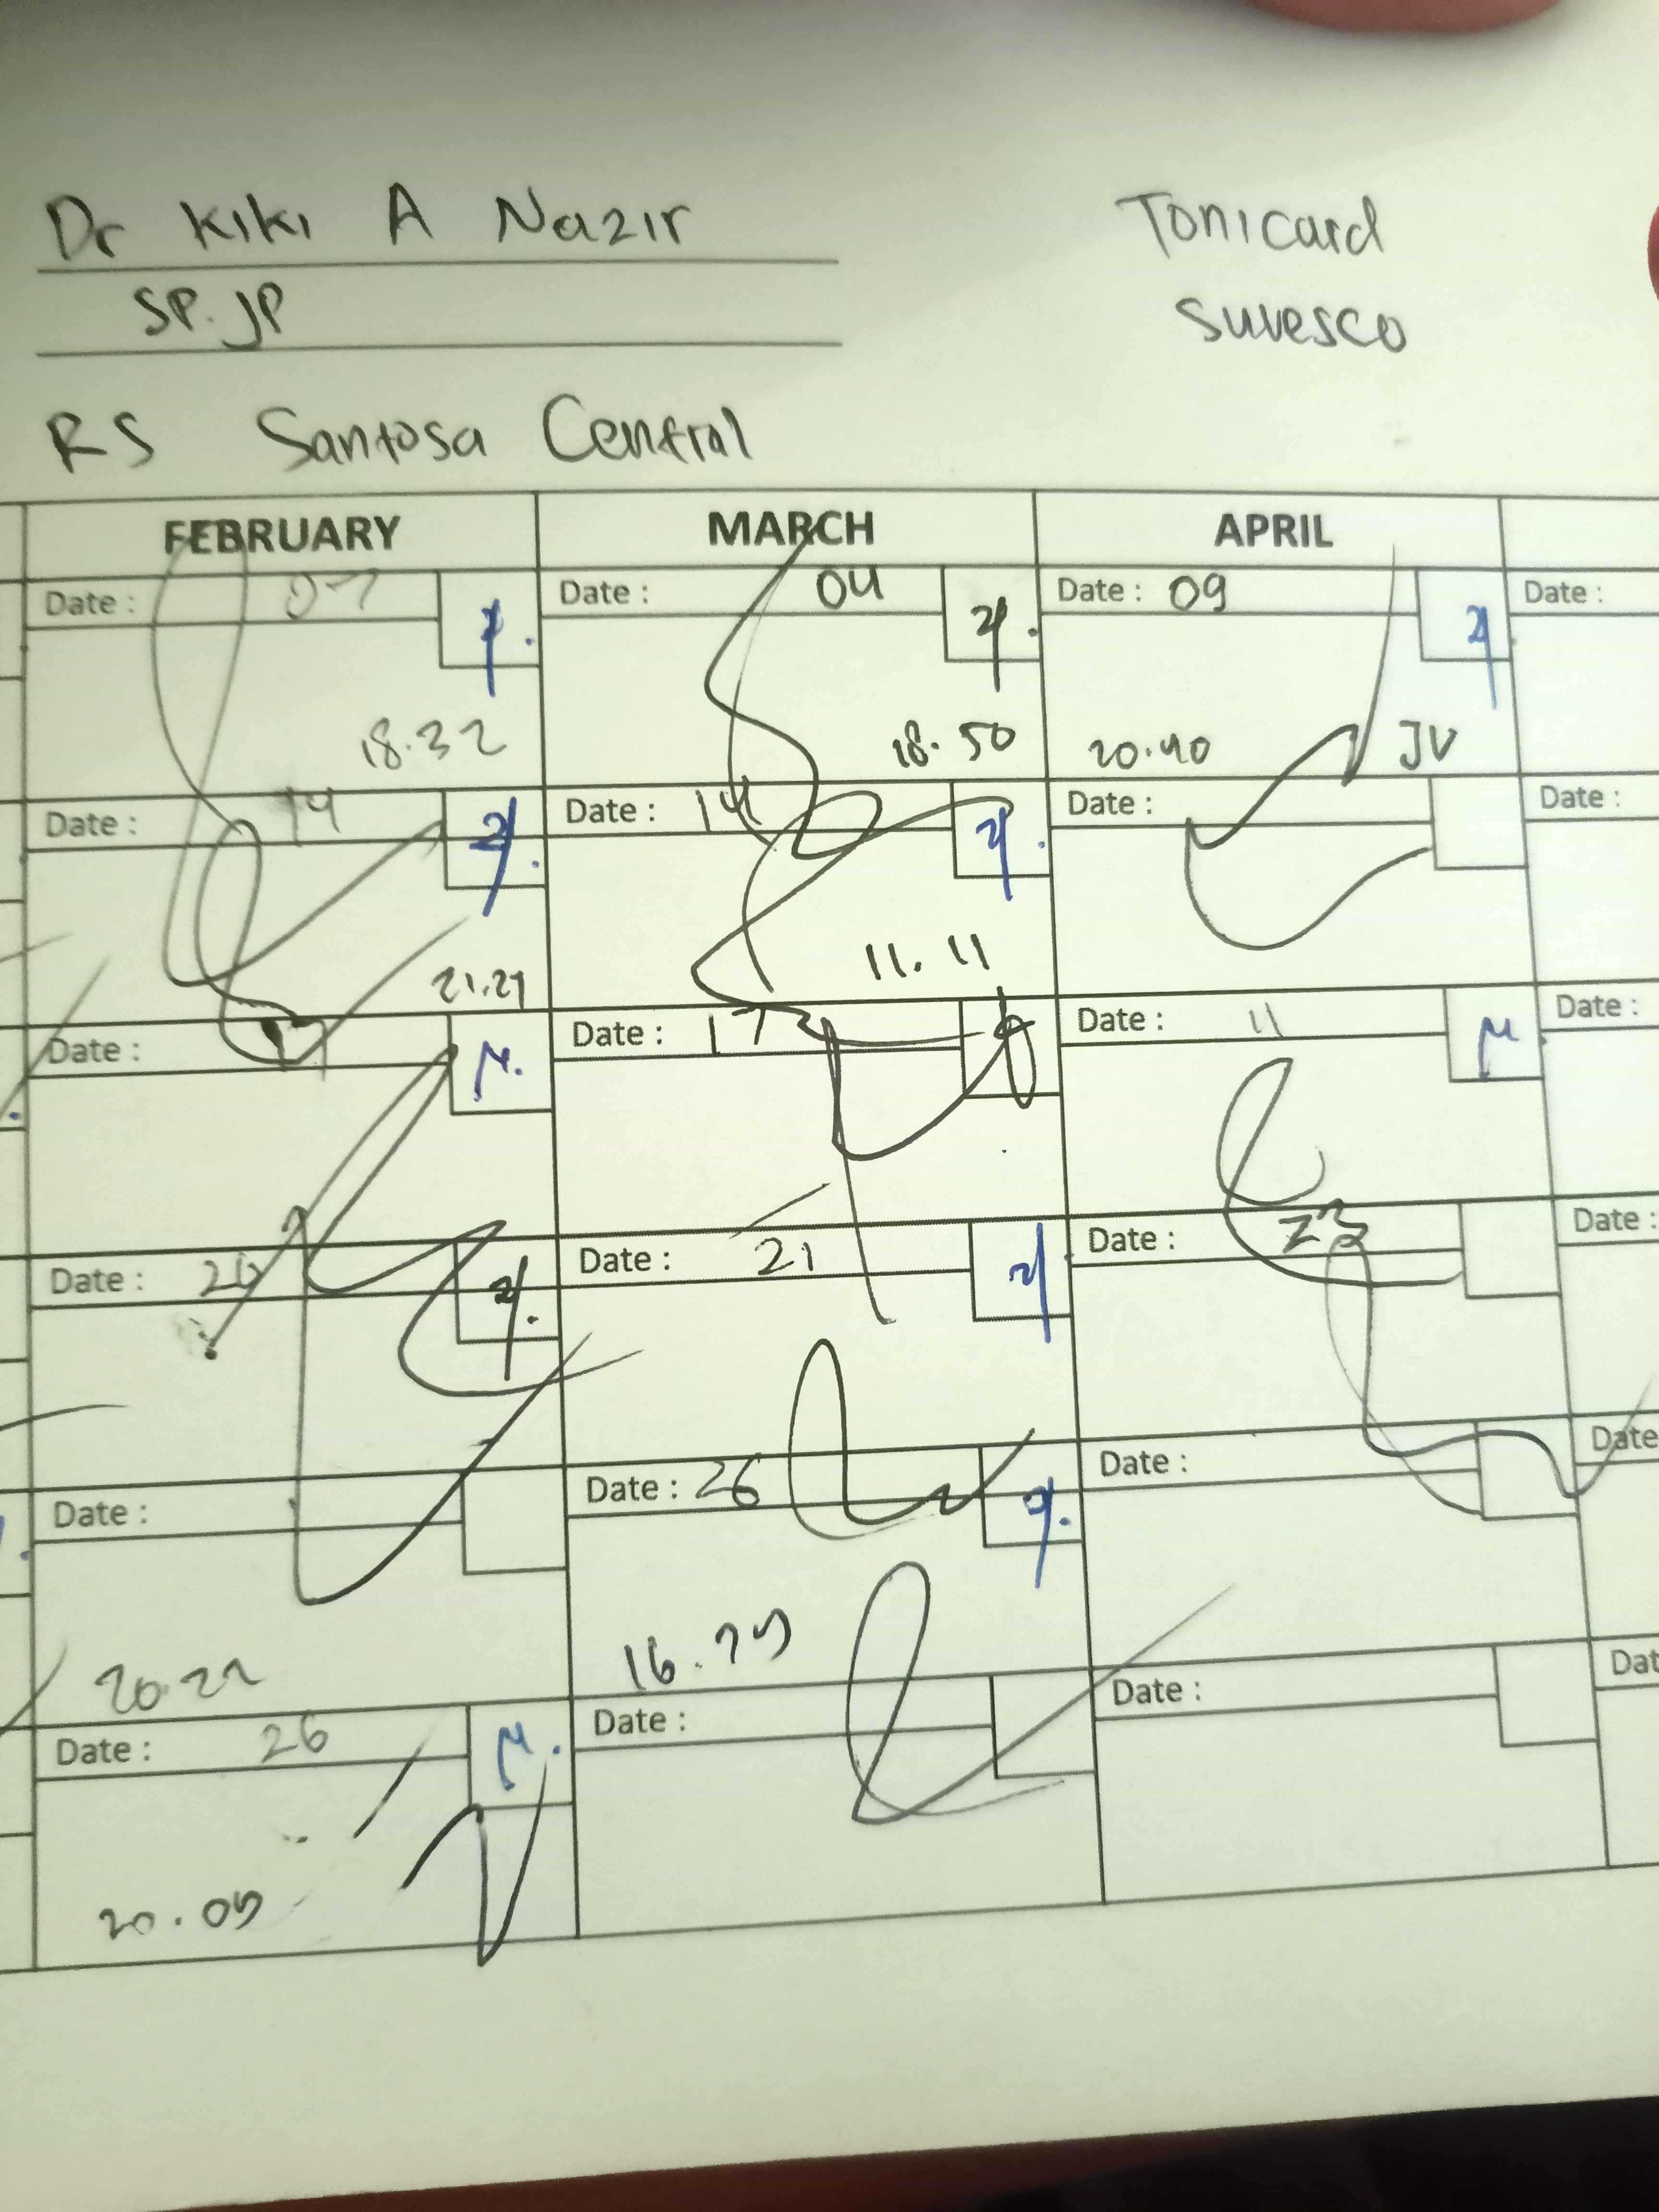 Dr Kiki A Nazir
SP.JP
Tonicard
Suvesco
RS Santosa Central
FEBRUARY MARCH APRIL
Date : 07 Date : 04 Date : 09 Date :
18.32 18.50 20.40 JV
Date : 14 Date : 14 Date : Date :
21.21 11.11
Date : Date : 17 Date : 11 Date :
Date : 20 Date : 21 Date : 23 Date :
Date : Date : 26 Date : Date
20.22
Date : 26 Date : Date : Dat
20.05